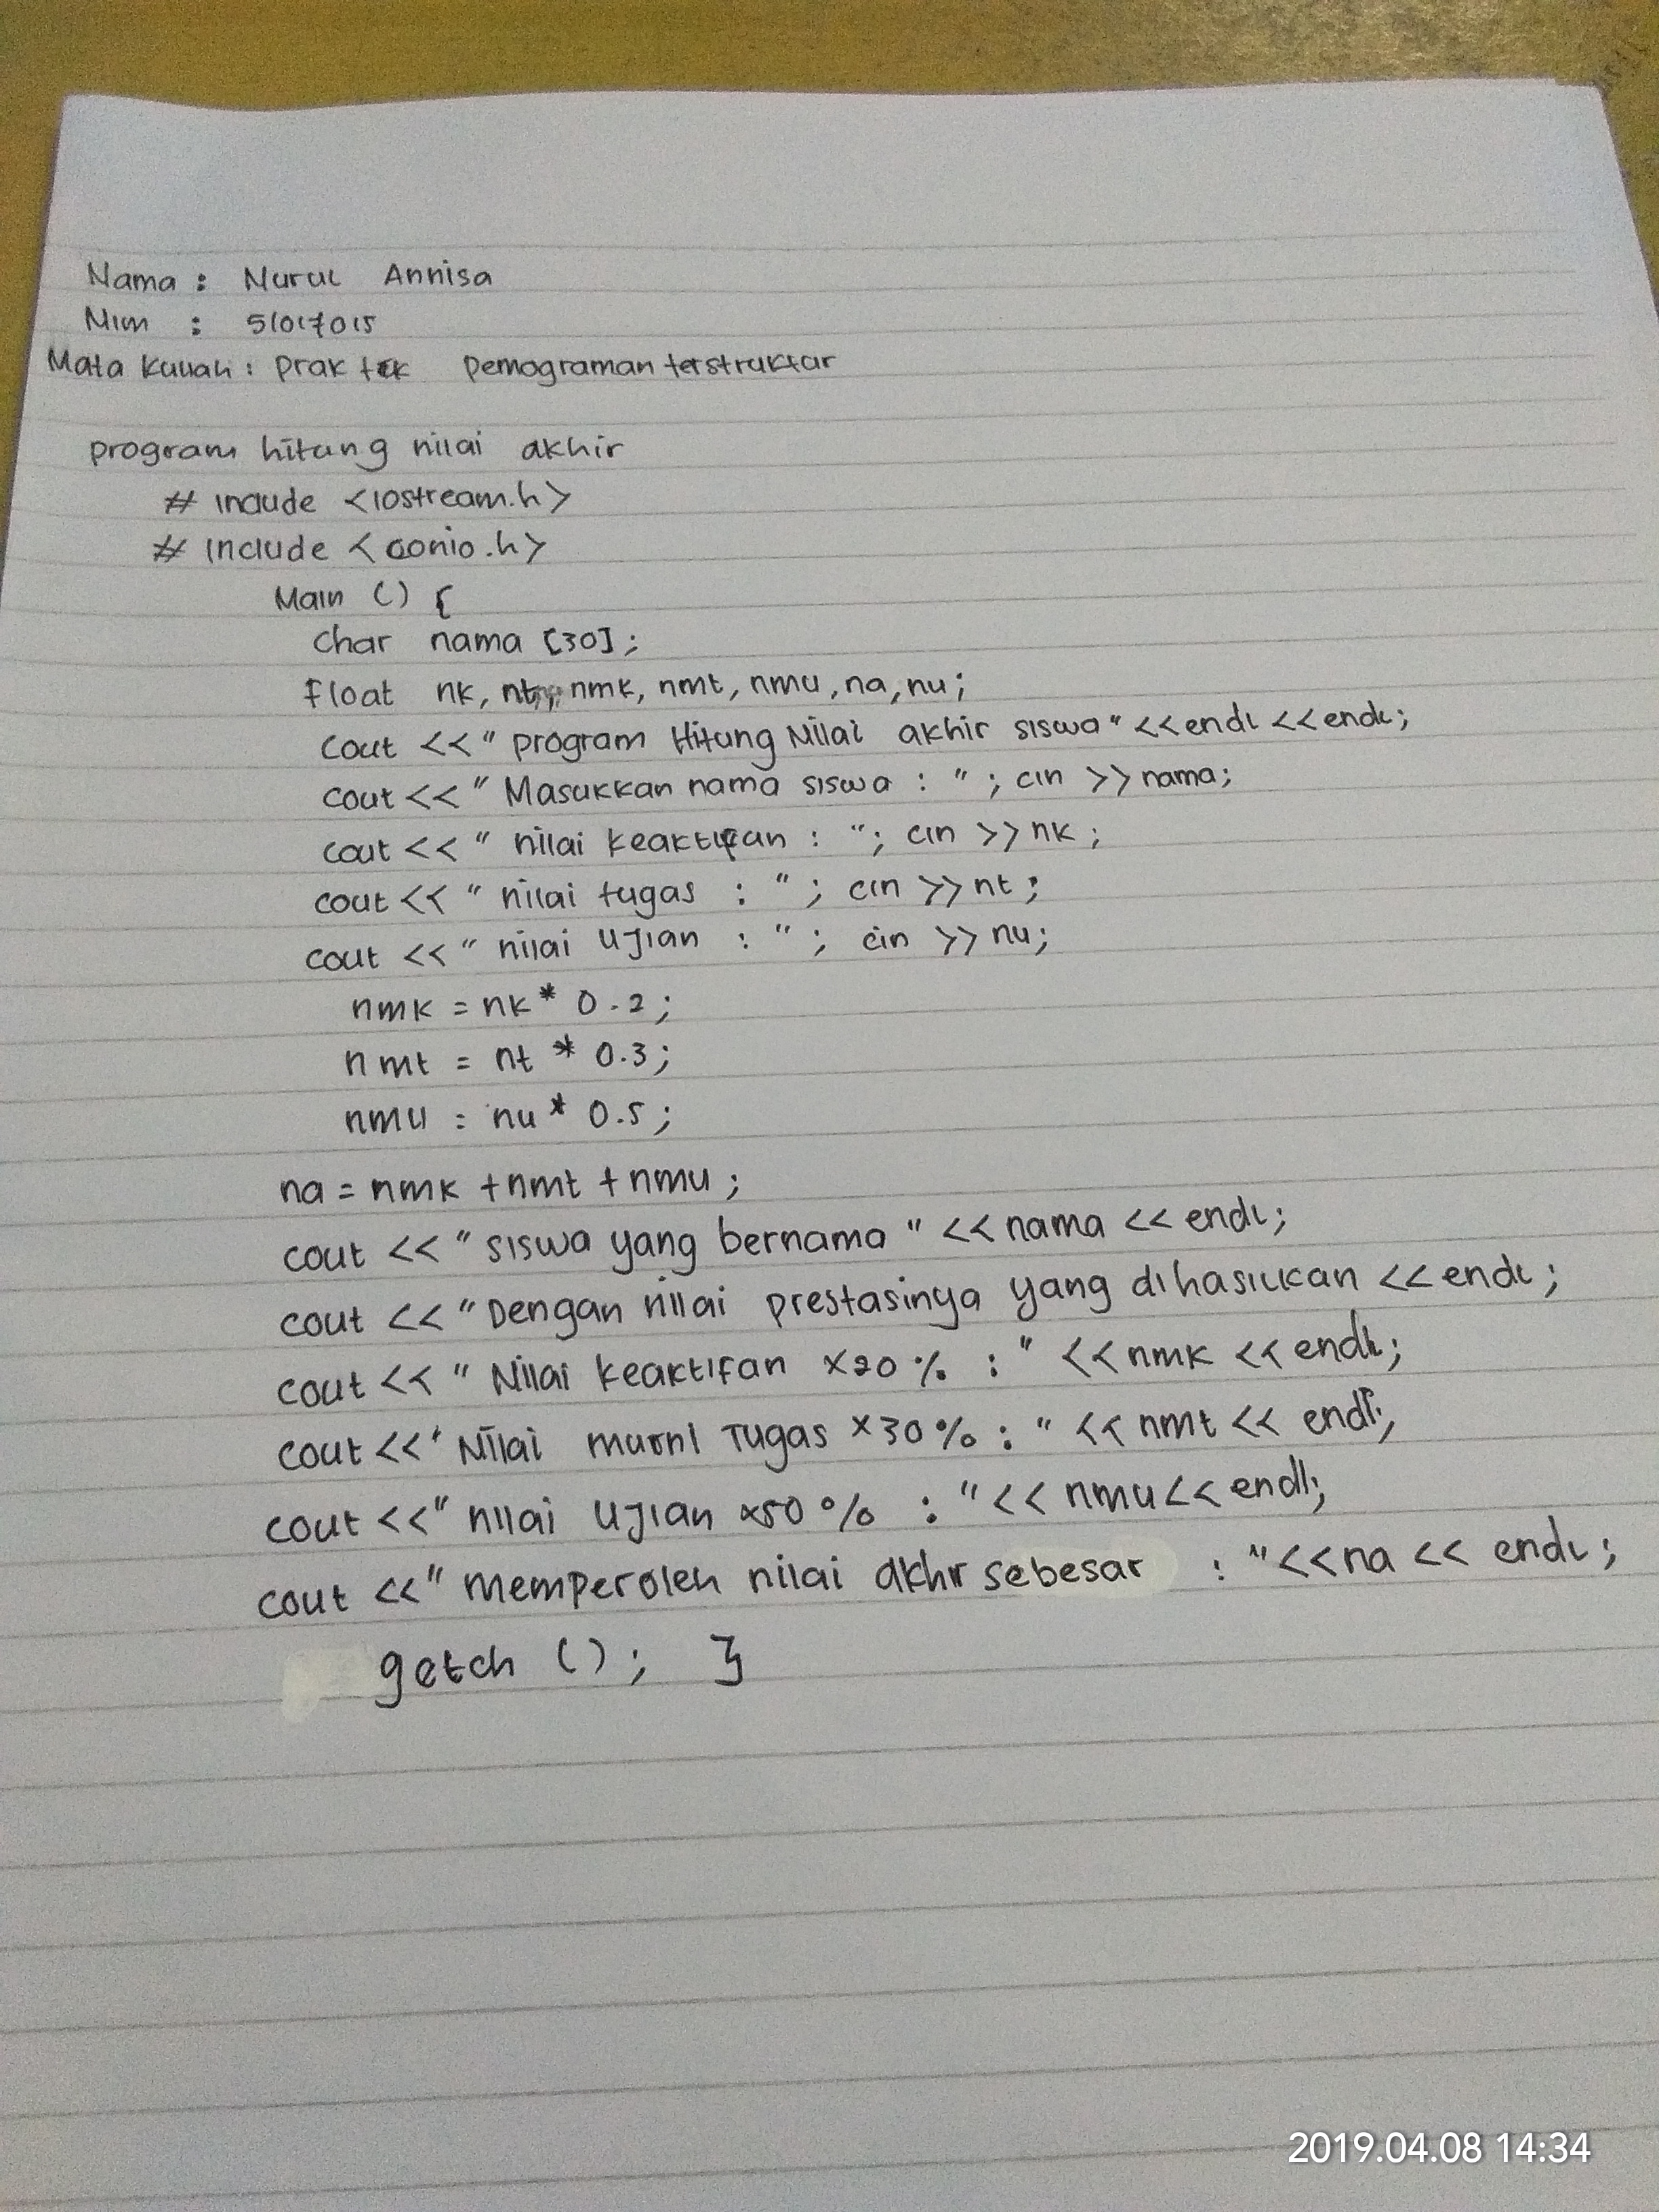 Nama : Nurul Annisa
Nim : 51017015
Mata Kuliah : Praktek Pemograman terstruktur
program hitung nilai akhir
# include <iostream.h>
# include <conio.h>
Main () {
char nama [30];
float nk, nt, nmk, nmt, nmu, na, nu;
cout << " program Hitung Nilai akhir siswa" <<endl <<endl;
cout << " Masukkan nama siswa : " ; cin >> nama;
cout << " nilai keaktifan : "; cin >> nk ;
cout << " nilai tugas : " ; cin >> nt ;
cout << " nilai Ujian : " ; cin >> nu;
nmk = nk * 0.2 ;
nmt = nt * 0.3 ;
nmu = nu * 0.5 ;
na = nmk + nmt + nmu ;
cout << " siswa yang bernama " << nama << endl;
cout << "Dengan nilai prestasinya yang dihasilkan << endl ;
cout << " Nilai keaktifan x20 % : " << nmk << endl;
cout << ' Nilai murni Tugas x 30 % : " << nmt << endl;
cout << " nilai Ujian x50 % : " << nmu << endl;
cout << " memperoleh nilai akhir sebesar : " << na << endl ;
getch () ; }
2019.04.08 14:34